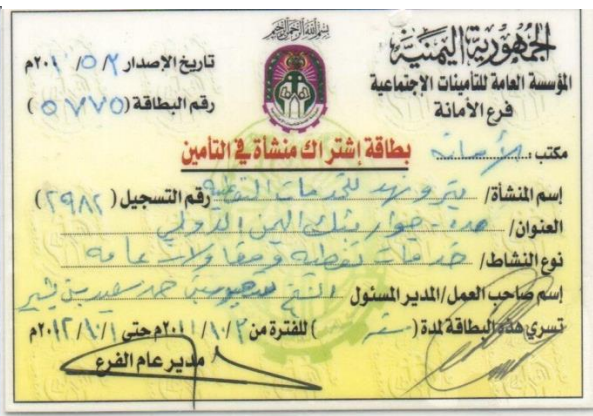 بسم الله الرحمن الرحيم
الجمهورية اليمنية
المؤسسة العامة للتأمينات الإجتماعية
فرع الأمانة
تاريخ الإصدار ٢ /٥ / ٢٠١م
رقم البطاقة (٥٧٧٥)
مكتب : الأمانة
بطاقة إشتراك منشأة في التأمين
إسم المنشأة/ بترو نهد للخدمات النفطية رقم التسجيل (٢٩٨٢)
العنوان/ حده - جوار بنك اليمن الدولي
نوع النشاط/ خدمات نفطيه ومقاولات عامه
إسم صاحب العمل/المدير المسئول / الشيخ حمد سعيد بن
تسري هذه البطاقة لمدة (سنه) للفترة من ٢ /١ /٢٠١١م حتى ١ /١ /٢٠١٢م
مدير عام الفرع